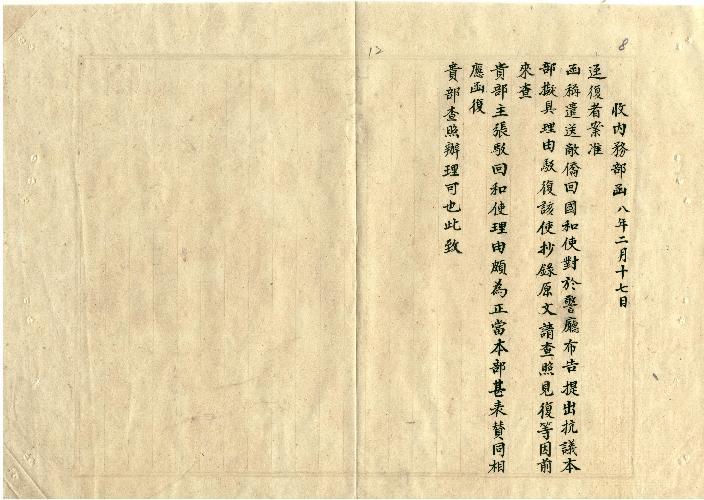 8
12
收內務部函 八年二月十七日
逕復者案准
函稱遣送敵僑回國和使對於警廳布告提出抗議本
部擬具理由駁復該使抄錄原文請查照見復等因前
來查
貴部主張駁回和使理由頗為正當本部甚表贊同相
應函復
貴部查照辦理可也此致